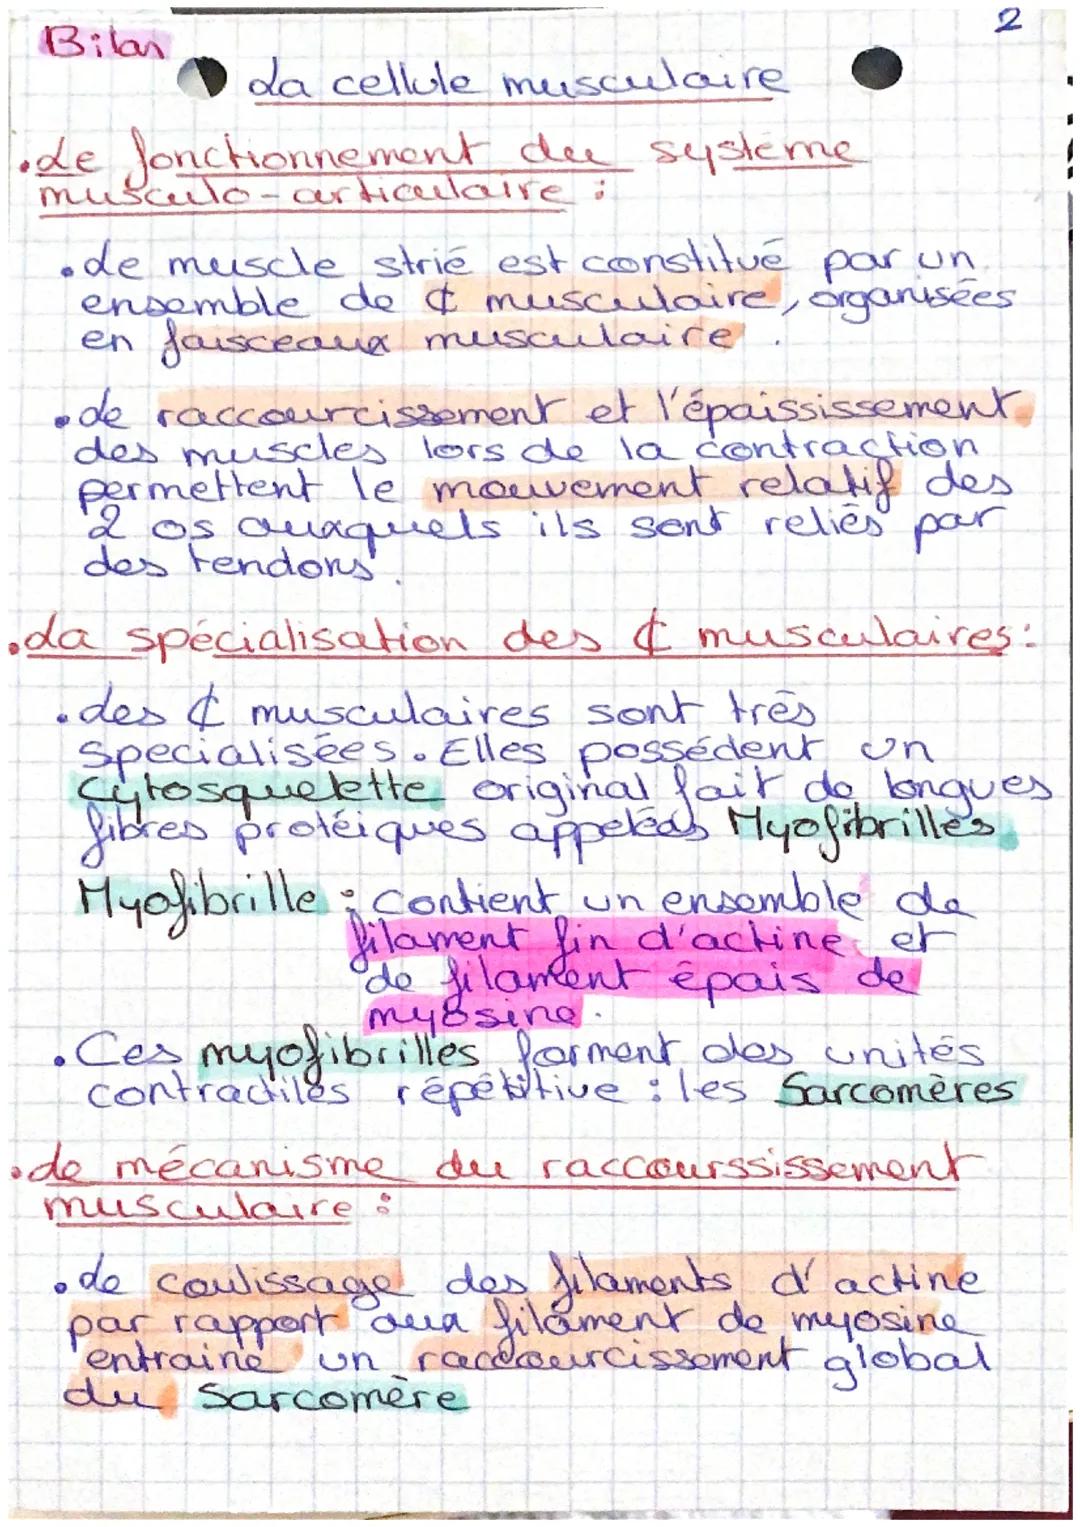 2
Bilan
La cellule musculaire
• Le fonctionnement du système
musculo-articulaire :
• Le muscle strié est constitué par un
ensemble de ₵ musculaire, organisées
en faisceaux musculaire.
• Le raccourcissement et l'épaississement
des muscles lors de la contraction
permettent le mouvement relatif des
2 os auxquels ils sont reliés par
des tendons.
• La spécialisation des ₵ musculaires :
• Les ₵ musculaires sont très
specialisées. Elles possédent un
Cytosquelette original fait de longues
fibres protéiques appelées Myofibrilles.
Myofibrille : Contient un ensemble de
filament fin d'actine et
de filament épais de
myosine.
• Ces myofibrilles forment des unités
contractiles répétitive : les Sarcomères
• Le mécanisme du raccourssissement
musculaire :
• Le coulissage des filaments d'actine
par rapport aux filament de myosine
entraine un raccourcissement global
du Sarcomère